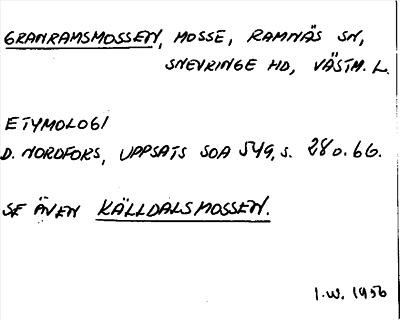 GRANRAMSMOSSEN, MOSSE, RAMNÄS SN,
SNEVRINGE HD, VÄSTM. L.
ETYMOLOGI
D. NORDFORS, UPPSATS SOA 549, S. 28 O. 66.
SE ÄVEN KÄLLDALSMOSSEN.
I.W. 1956